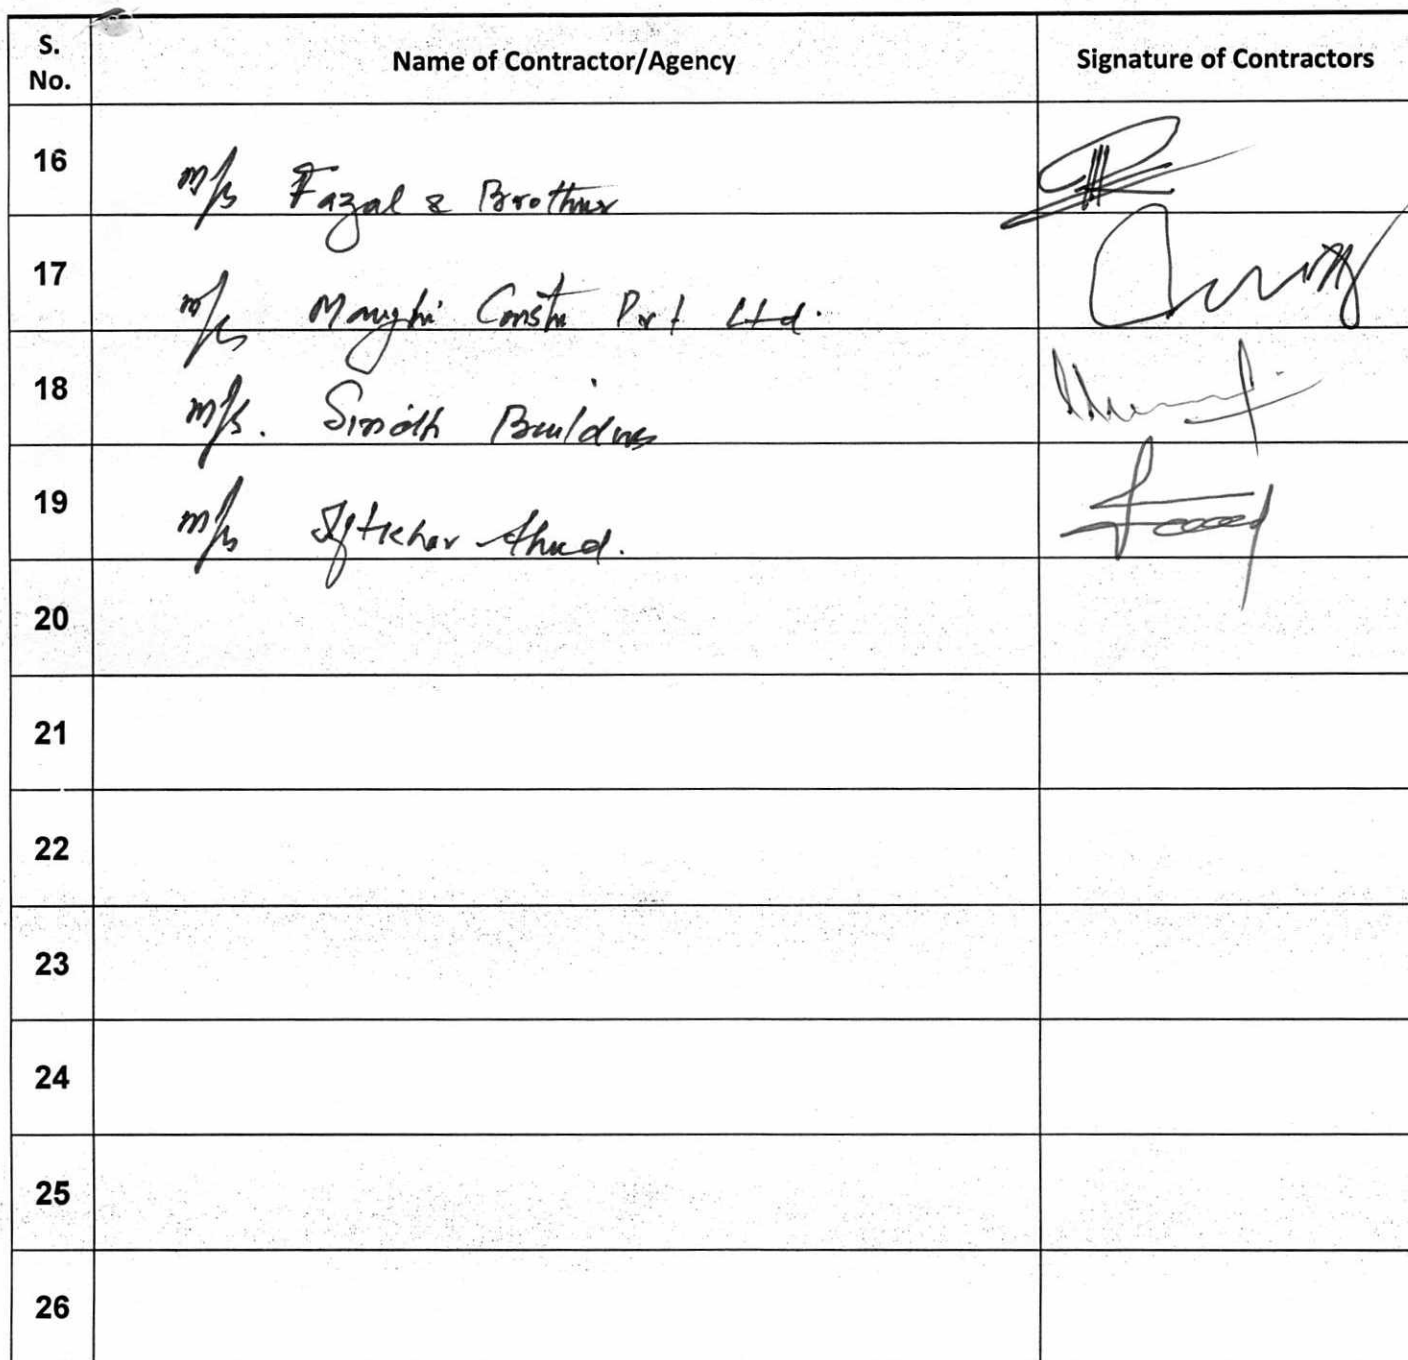 S. No. Name of Contractor/Agency Signature of Contractors
16 M/s Fazal & Brothers
17 M/s Maughi Constn Pvt Ltd.
18 M/s. Sindh Builders
19 M/s Iftikhar Ahmed.
20
21
22
23
24
25
26